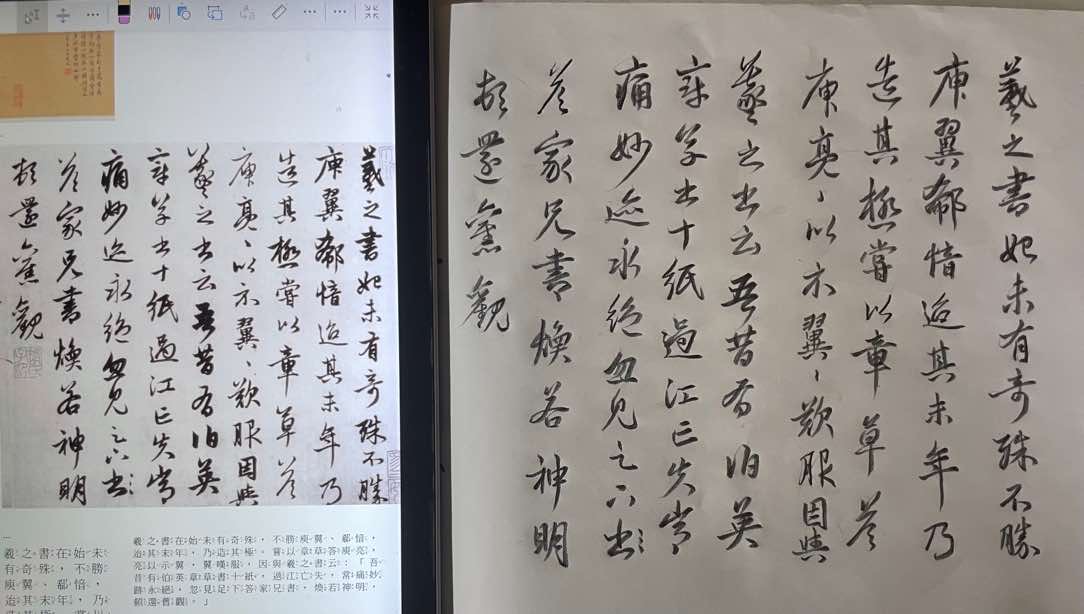 羲之書始未有奇殊不勝
庾翼郗愔迨其末年乃
造其極嘗以章草答
庾亮、以示翼、歎服因與
羲之書云吾昔有伯英
章草書十紙過江亡失常
痛妙迹永絕忽見足下書
答家兄書煥若神明
頓還舊觀
羲之書始未有奇殊不勝
庾翼郗愔迨其末年乃
造其極嘗以章草答
庾亮、以示翼、歎服因與
羲之書云吾昔有伯英
章草書十紙過江亡失常
痛妙迹永絕忽見足下書
答家兄書煥若神明
頓還舊觀
羲之書在始未
有奇殊，不勝
庾翼、郗愔，
迨其末年，乃
羲之書在始未有奇殊，不勝庾翼、郗愔，
迨其末年，乃造其極。嘗以章草答庾亮，
亮以示翼，翼嘆服，因與羲之書云：「吾
昔有伯英章草書十紙，過江亡失，常痛妙
跡永絕，忽見足下答家兄書，煥若神明，
頓還舊觀。」